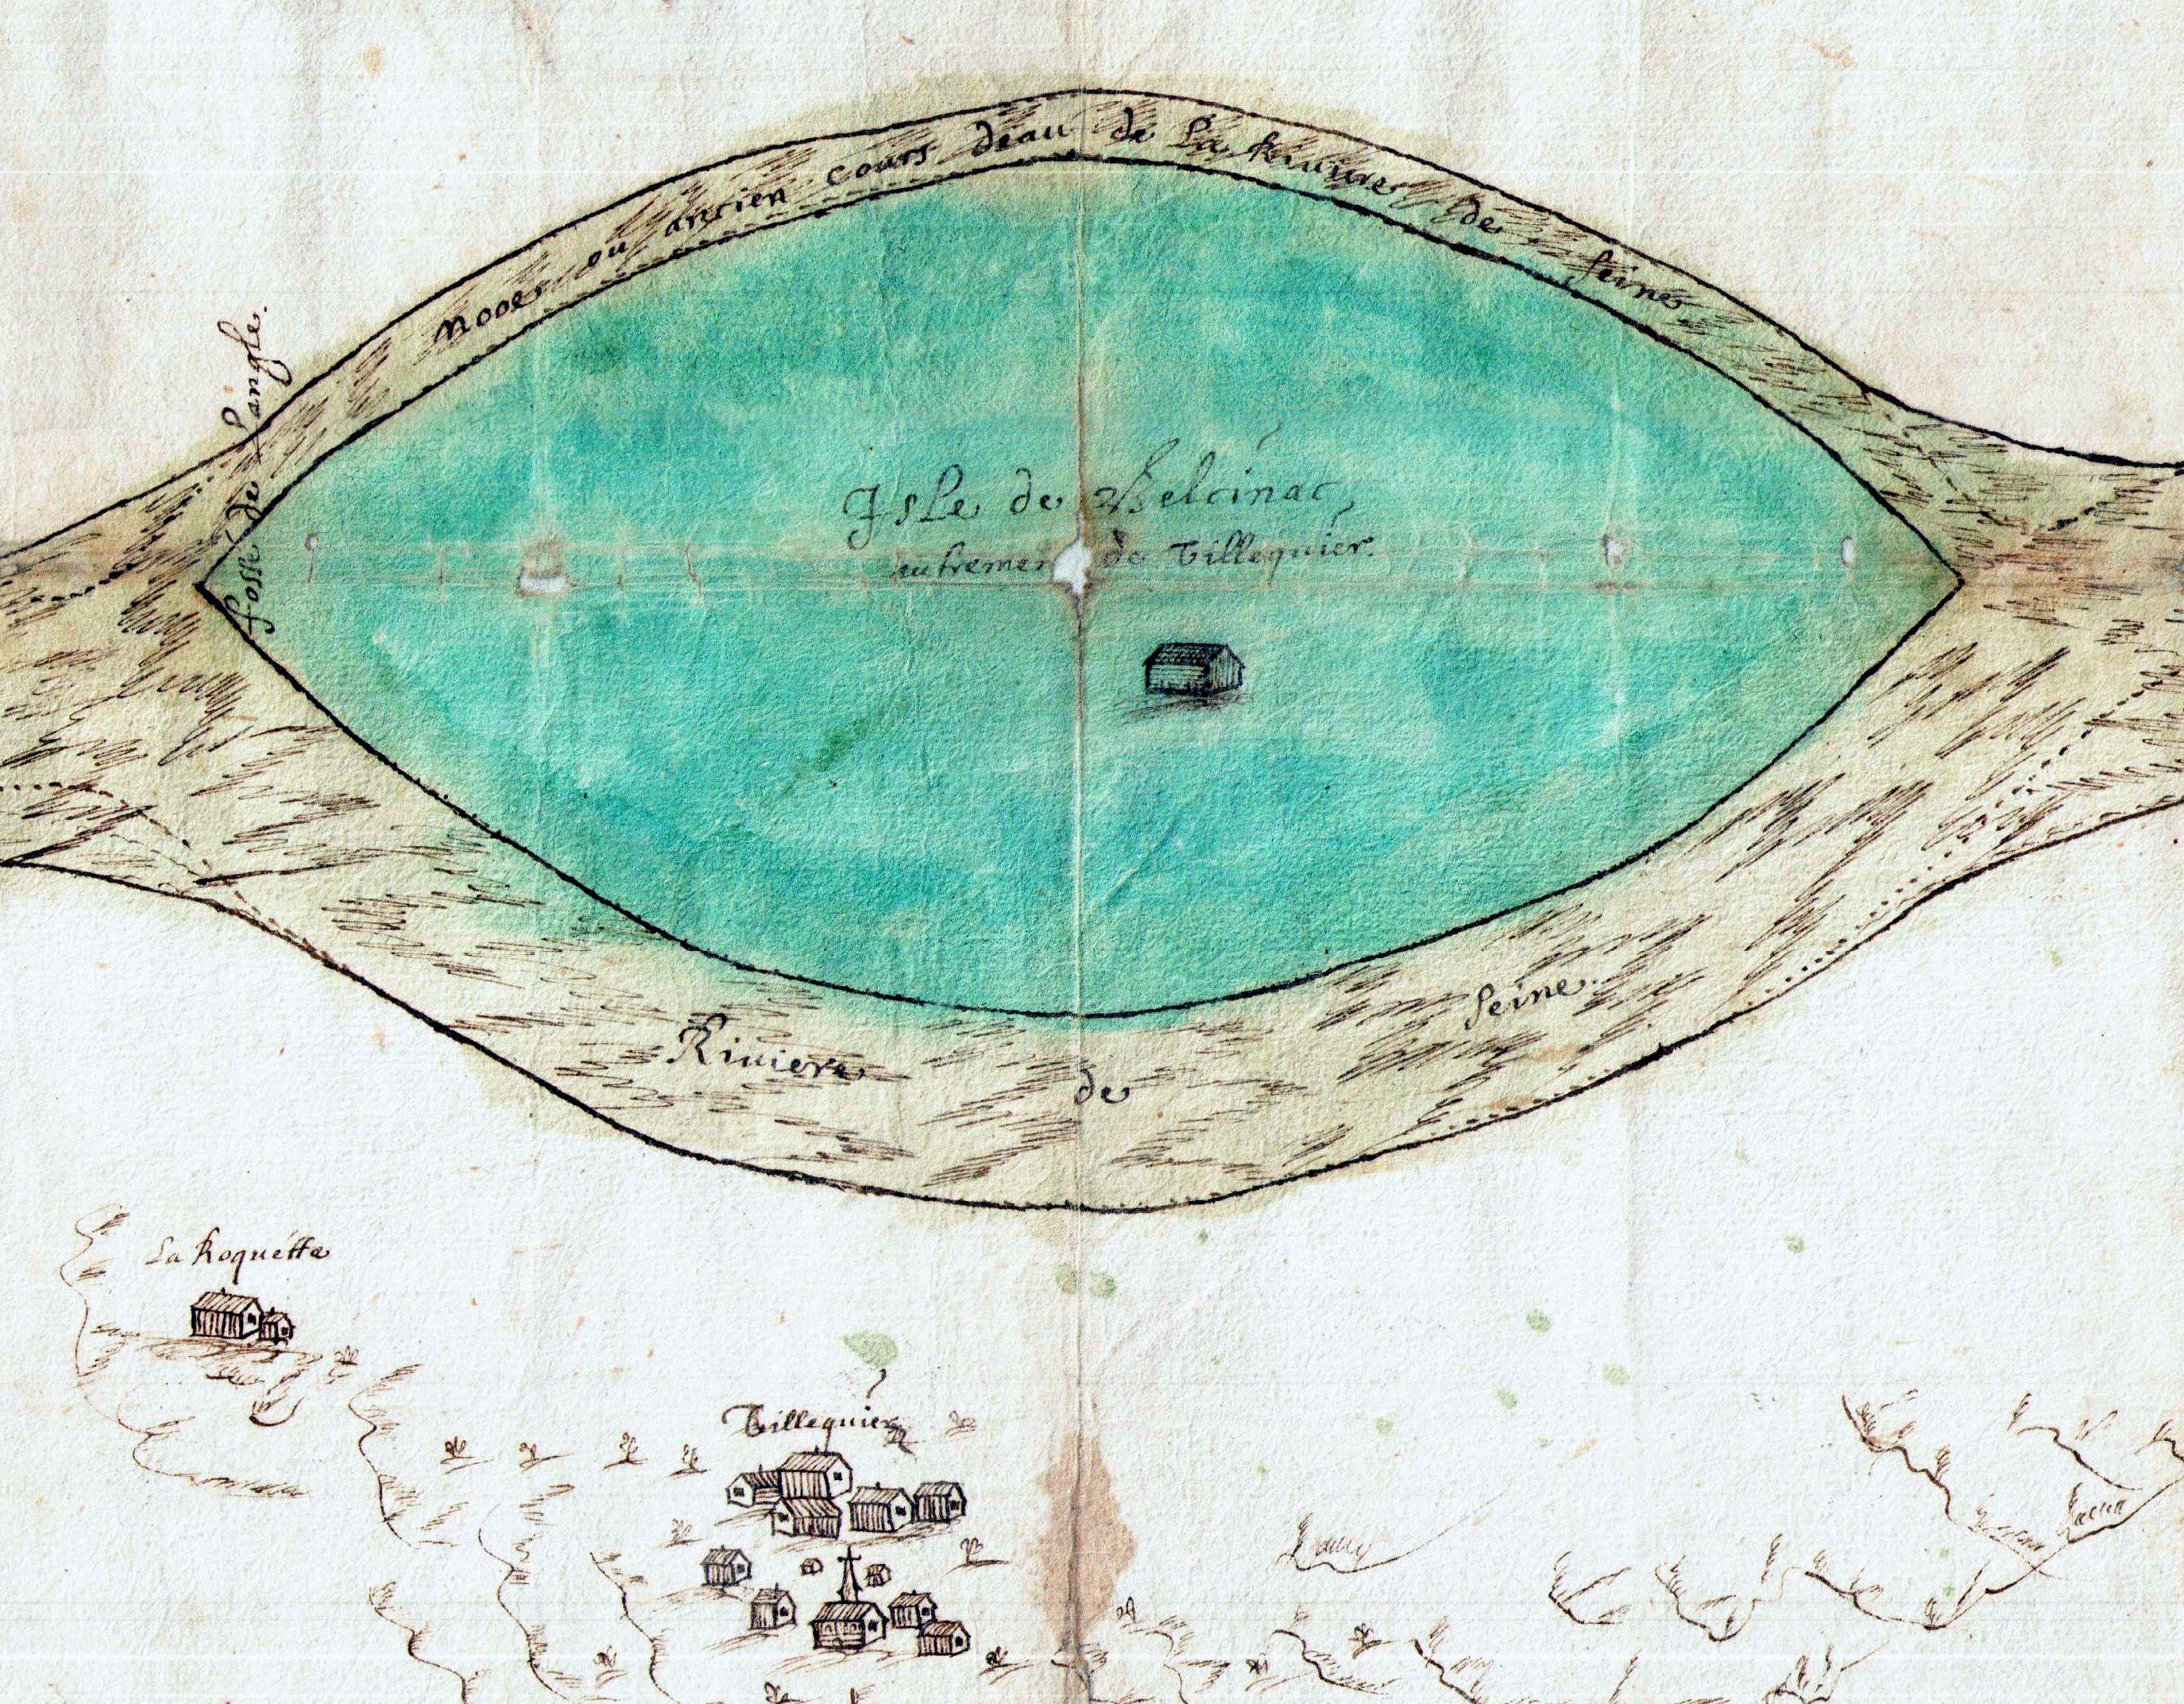 Nooes ou ancien cours deau de La Riuiere de Seine
fossé de Langle.
Isle de Belcinac
autrement de Villequier.
Riuiere de Seine.
La Roquette
Villequier